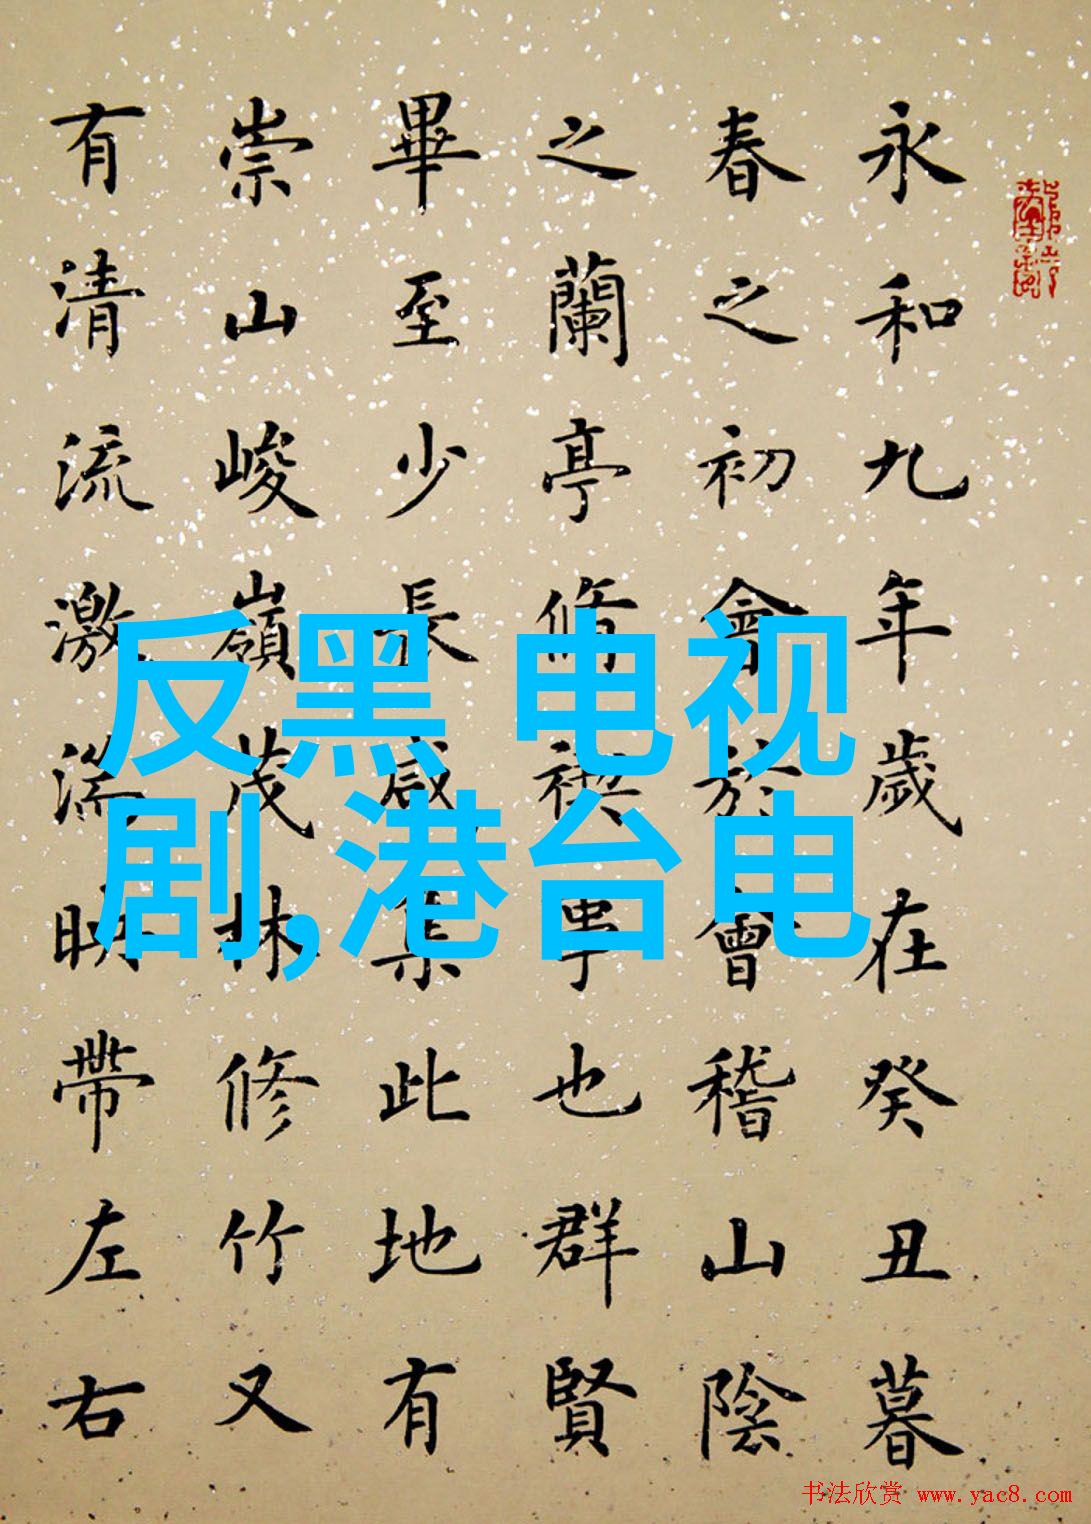 永和九年歲在癸丑暮
春之初會於會稽山陰
之蘭亭脩禊事也群賢
畢至少長咸集此地有
崇山峻嶺茂林修竹又
有清流激湍映帶左右
反黑 电视
剧,港台电
书法欣赏 www.yac8.com